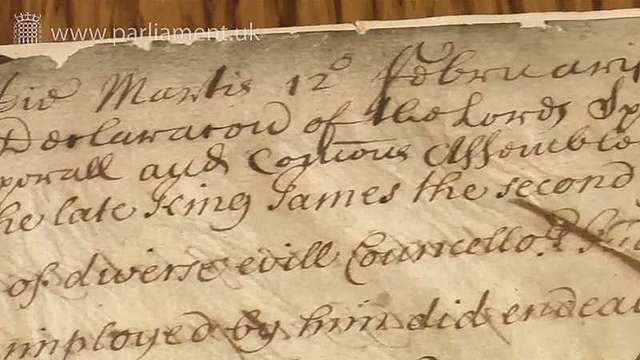 www.parliament.uk
Die Martis 12º ffebruarii
Declaracon of the Lords Sp
porall and Comons Assemble
he late King James the second
of diverse evill Councellors
imployed by him did endeav